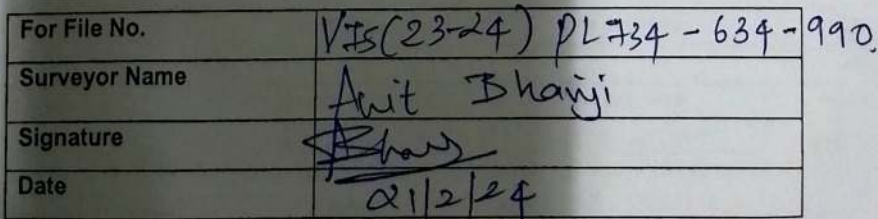 For File No. VIS(23-24) PL734-634-990
Surveyor Name Anit Bhanji
Signature
Date 21/2/24